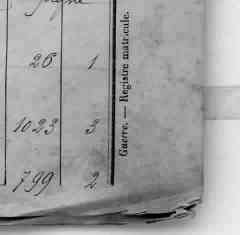 26 1
1023 3
799 2
Guerre. — Registre matricule.